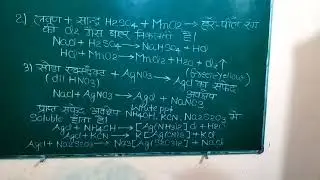 2) लवण + सान्द्र H2SO4 + MnO2 → हरे-पीले रंग
की Cl2 गैस बाहर निकलती है।
NaCl + H2SO4 → NaHSO4 + HCl
HCl + MnO2 → MnCl2 + H2O + Cl2↑
3) सोडा निष्कर्ष + AgNO3 → AgCl का सफेद
(dil HNO3) अवक्षेप
NaCl + AgNO3 → AgCl + NaNO3
प्राप्त सफेद अवक्षेप NH4OH, KCN, Na2S2O3 में
Soluble होता है।
AgCl + NH4OH → [Ag(NH3)2]Cl + H2O
AgCl + KCN → K[Ag(CN)2] + KCl
AgCl + Na2S2O3 → Na3[Ag(S2O3)2] + NaCl